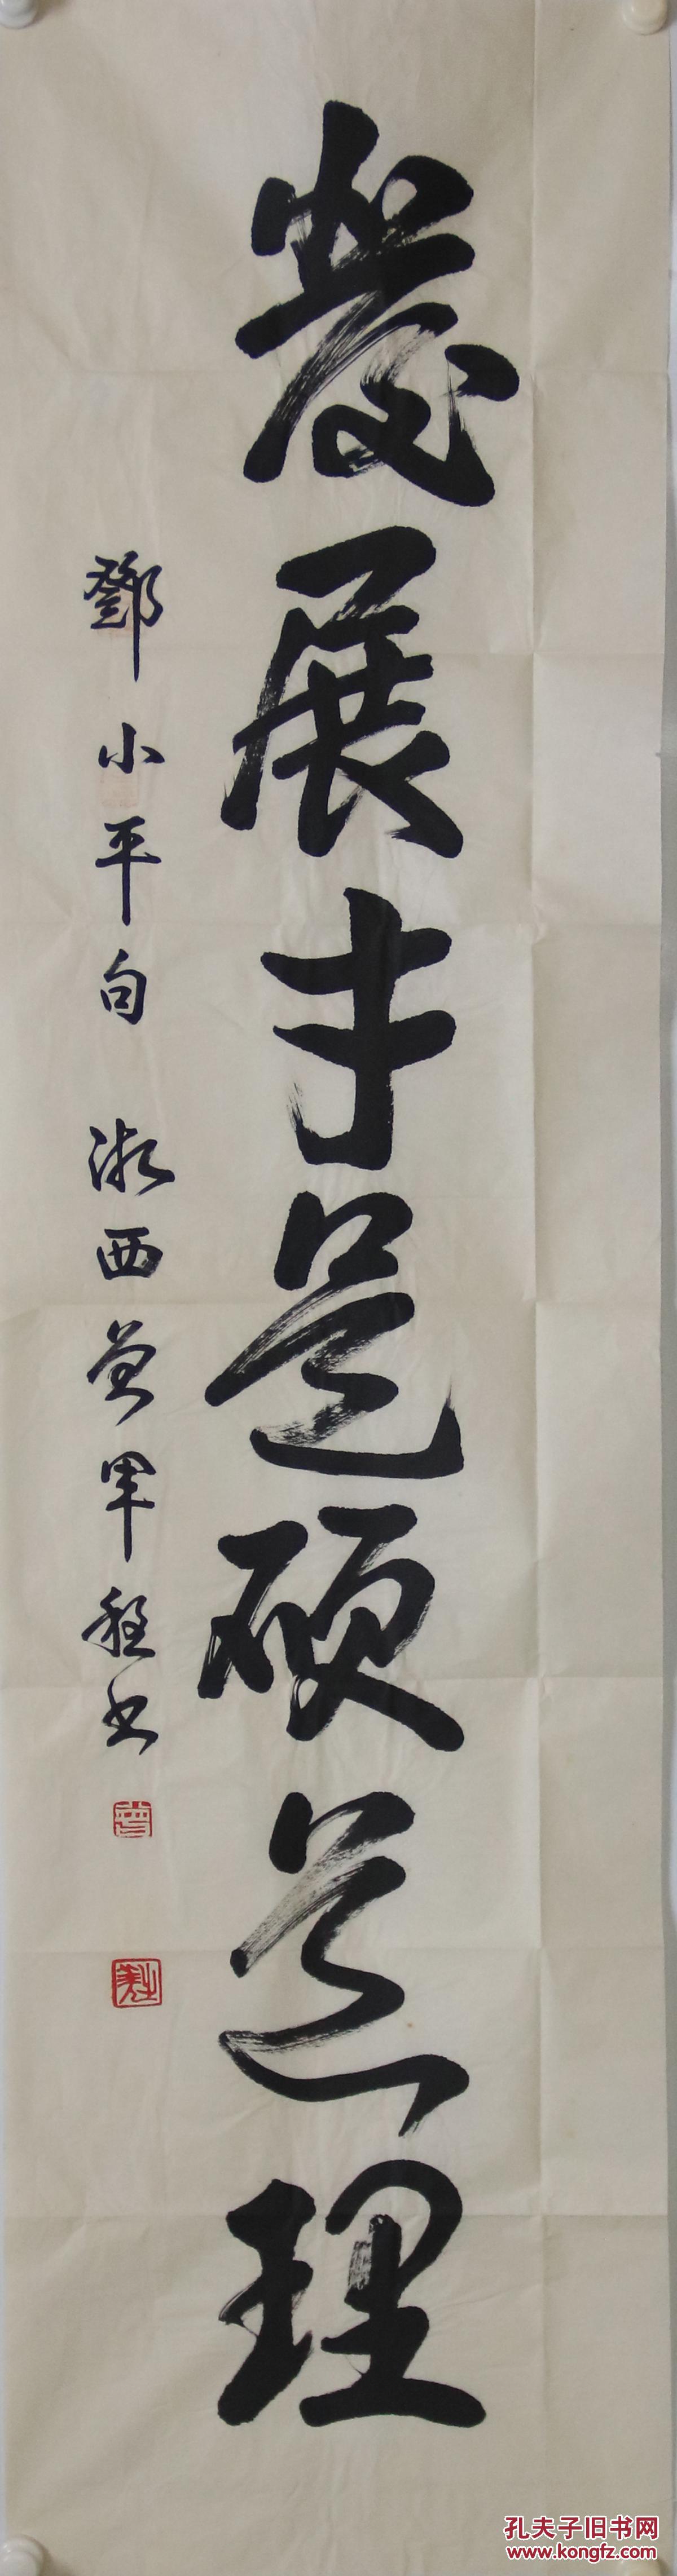 發展才是硬道理
鄧小平句 湘西曾軍程书
孔夫子旧书网
www.kongfz.com